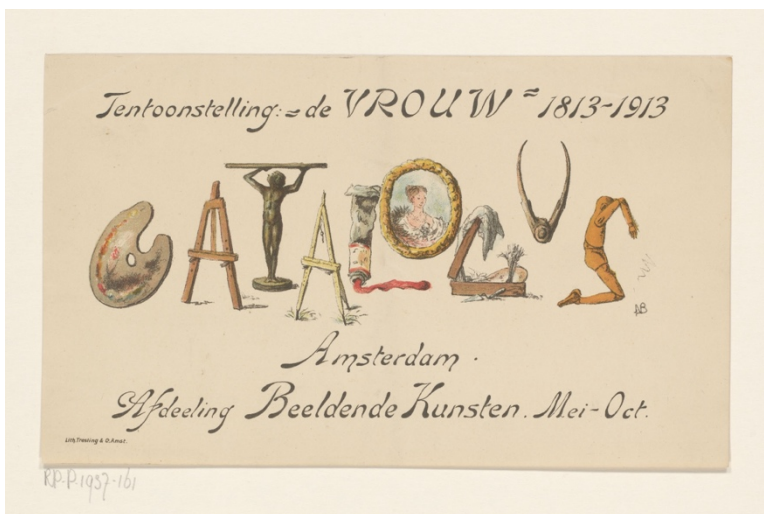 Tentoonstelling: = de VROUW = 1813-1913
CATALOGUS
AB
Amsterdam.
Afdeeling Beeldende Kunsten. Mei - Oct.
Lith. Tresling & Co. Amst.
RP-P-1937-161